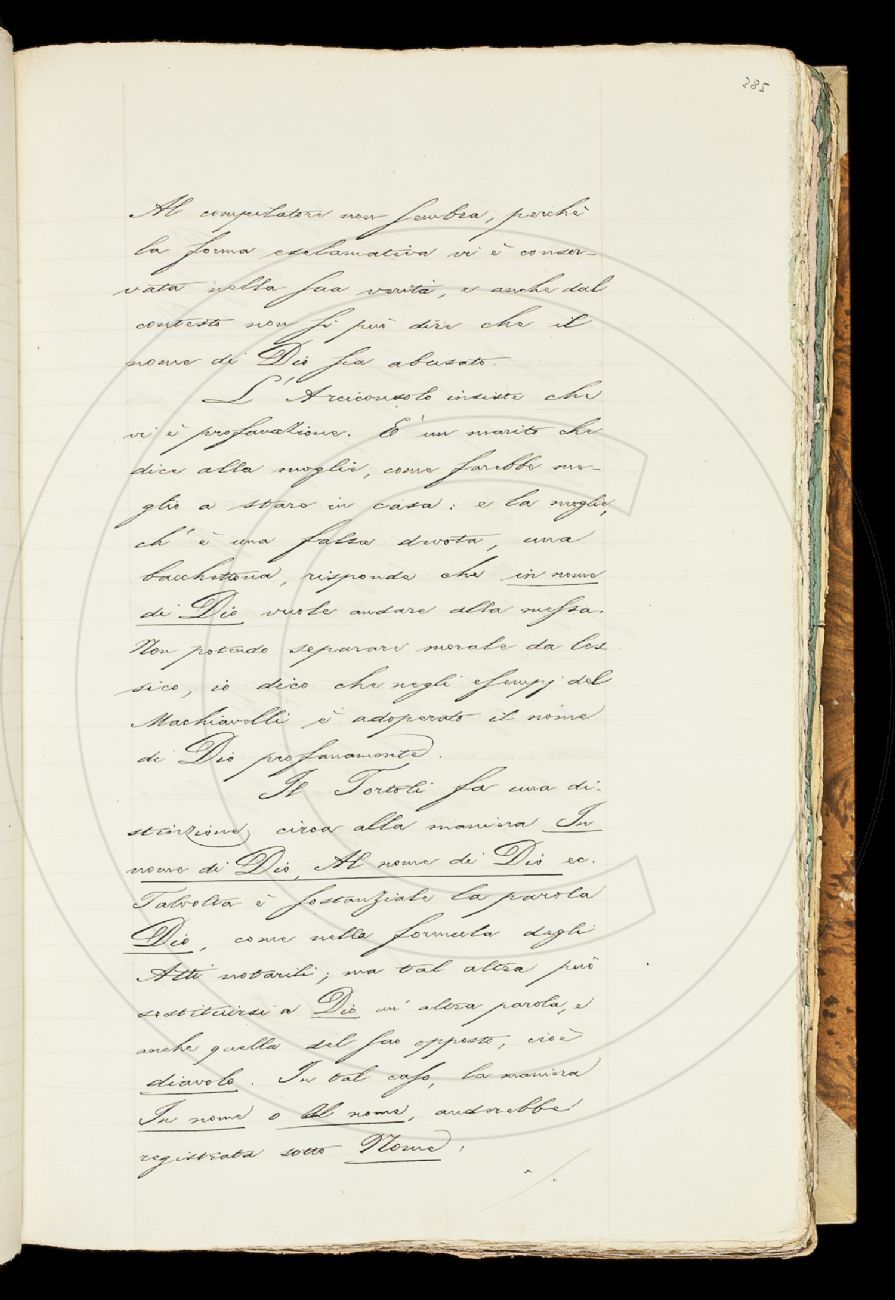 285
Al compilatore non sembra, perchè
la forma esclamativa vi è conser-
vata nella sua verità, e anche dal
contesto non si può dire che il
nome di Dio sia abusato.
L'Arciconsolo insiste che
vi è profanazione. È un marito che
dice alla moglie, come farebbe me-
glio a stare in casa: e la moglie,
ch'è una falsa devota, una
bacchettona, risponde che in nome
di Dio vuole andare alla messa.
Non potendo separare morale da les
sico, io dico che negli esempj del
Machiavelli è adoperato il nome
di Dio profanamente.
Il Tortoli fa una di-
stinzione circa alla maniera In
nome di Dio, Al nome di Dio ec.
Talvolta è sostanziale la parola
Dio, come nella formula degli
Atti notarili; ma tal altra può
sostituirsi a Dio un'altra parola, e
anche quella del suo opposto, cioè
diavolo. In tal caso, la maniera
In nome o Al nome, andrebbe
registrata sotto Nome.